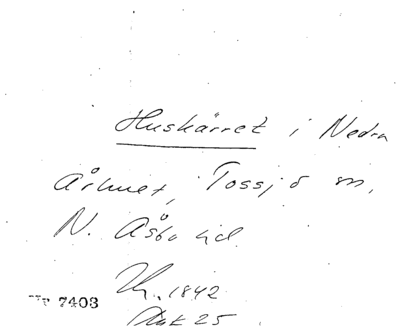 Huskärret i Nedra
Århult, Tossjö sn,
N. Åsbo hd.
1842
25
Nr 7403